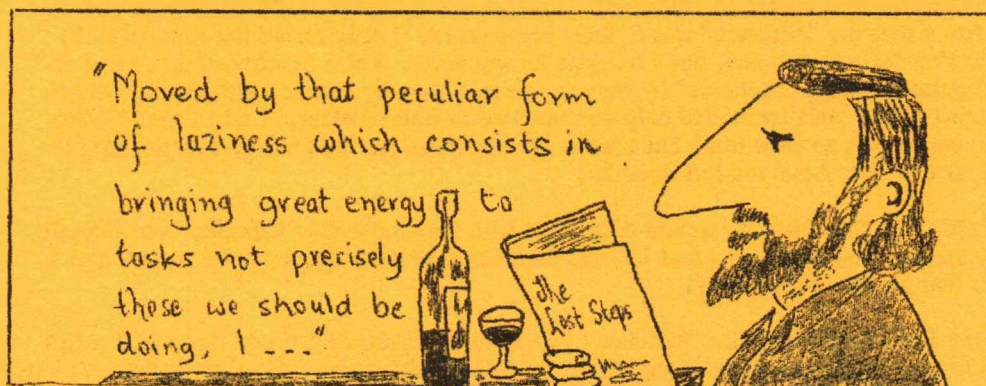 "Moved by that peculiar form
of laziness which consists in
bringing great energy to
tasks not precisely
those we should be
doing, I ---"
the
Lost Steps